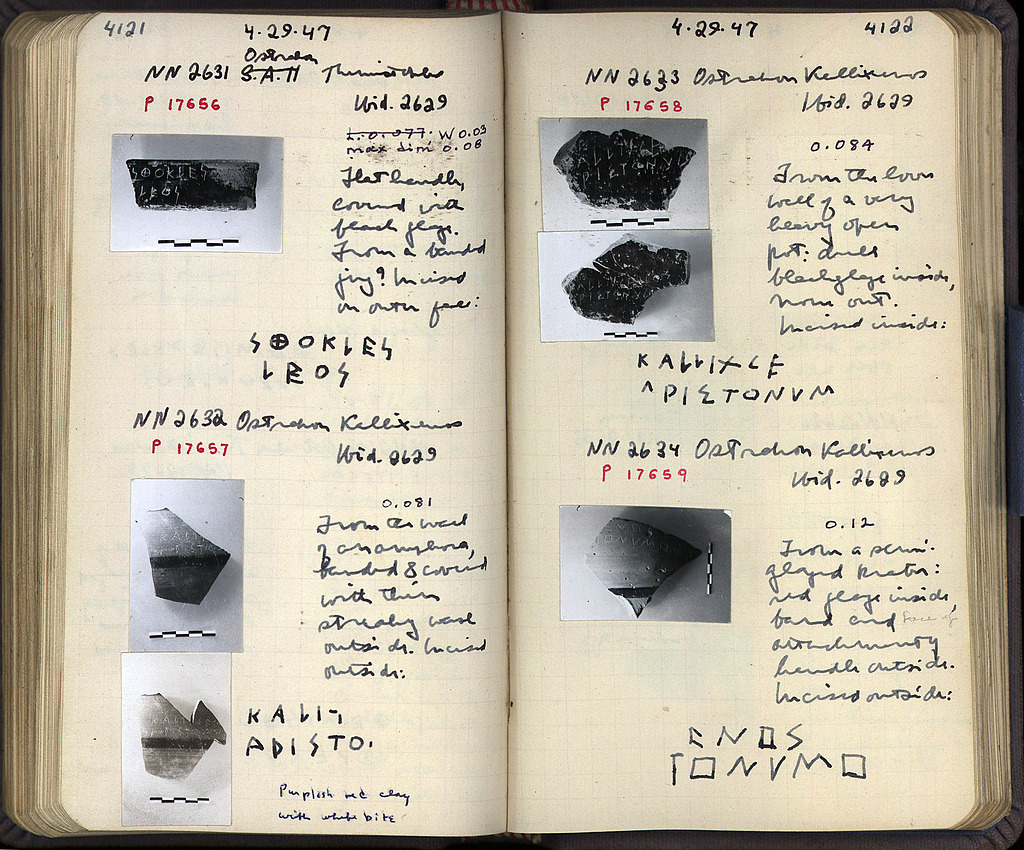 4121
4.29.47
Ostrakon
NN 2631 S.A.H Themistokles
P 17656
Ibid. 2629
L. 0.077. W 0.03
max dim 0.08
Flat handle,
covered with
black glaze.
From a banded
jug? Incised
on outer face:
SΘOKLES
LEOS
NN 2632 Ostrakon Kallixenos
P 17657
Ibid. 2629
0.081
From the wall
of an amphora,
banded & covered
with thin
streaky wash
outside. Incised
outside:
KALI
ARISTO.
Purplish red clay
with white bits
4.29.47
4122
NN 2633 Ostrakon Kallixenos
P 17658
Ibid. 2629
0.084
From the lower
wall of a very
heavy open
pot: dull
black glaze inside,
none out.
Incised inside:
KALLIXSE
ΛPIΣTONVM
NN 2634 Ostrakon Kallixenos
P 17659
Ibid. 2629
0.12
From a semi-
glazed krater:
red glaze inside,
band and
attachment of
handle outside.
Incised outside:
ENOS
TONVMO